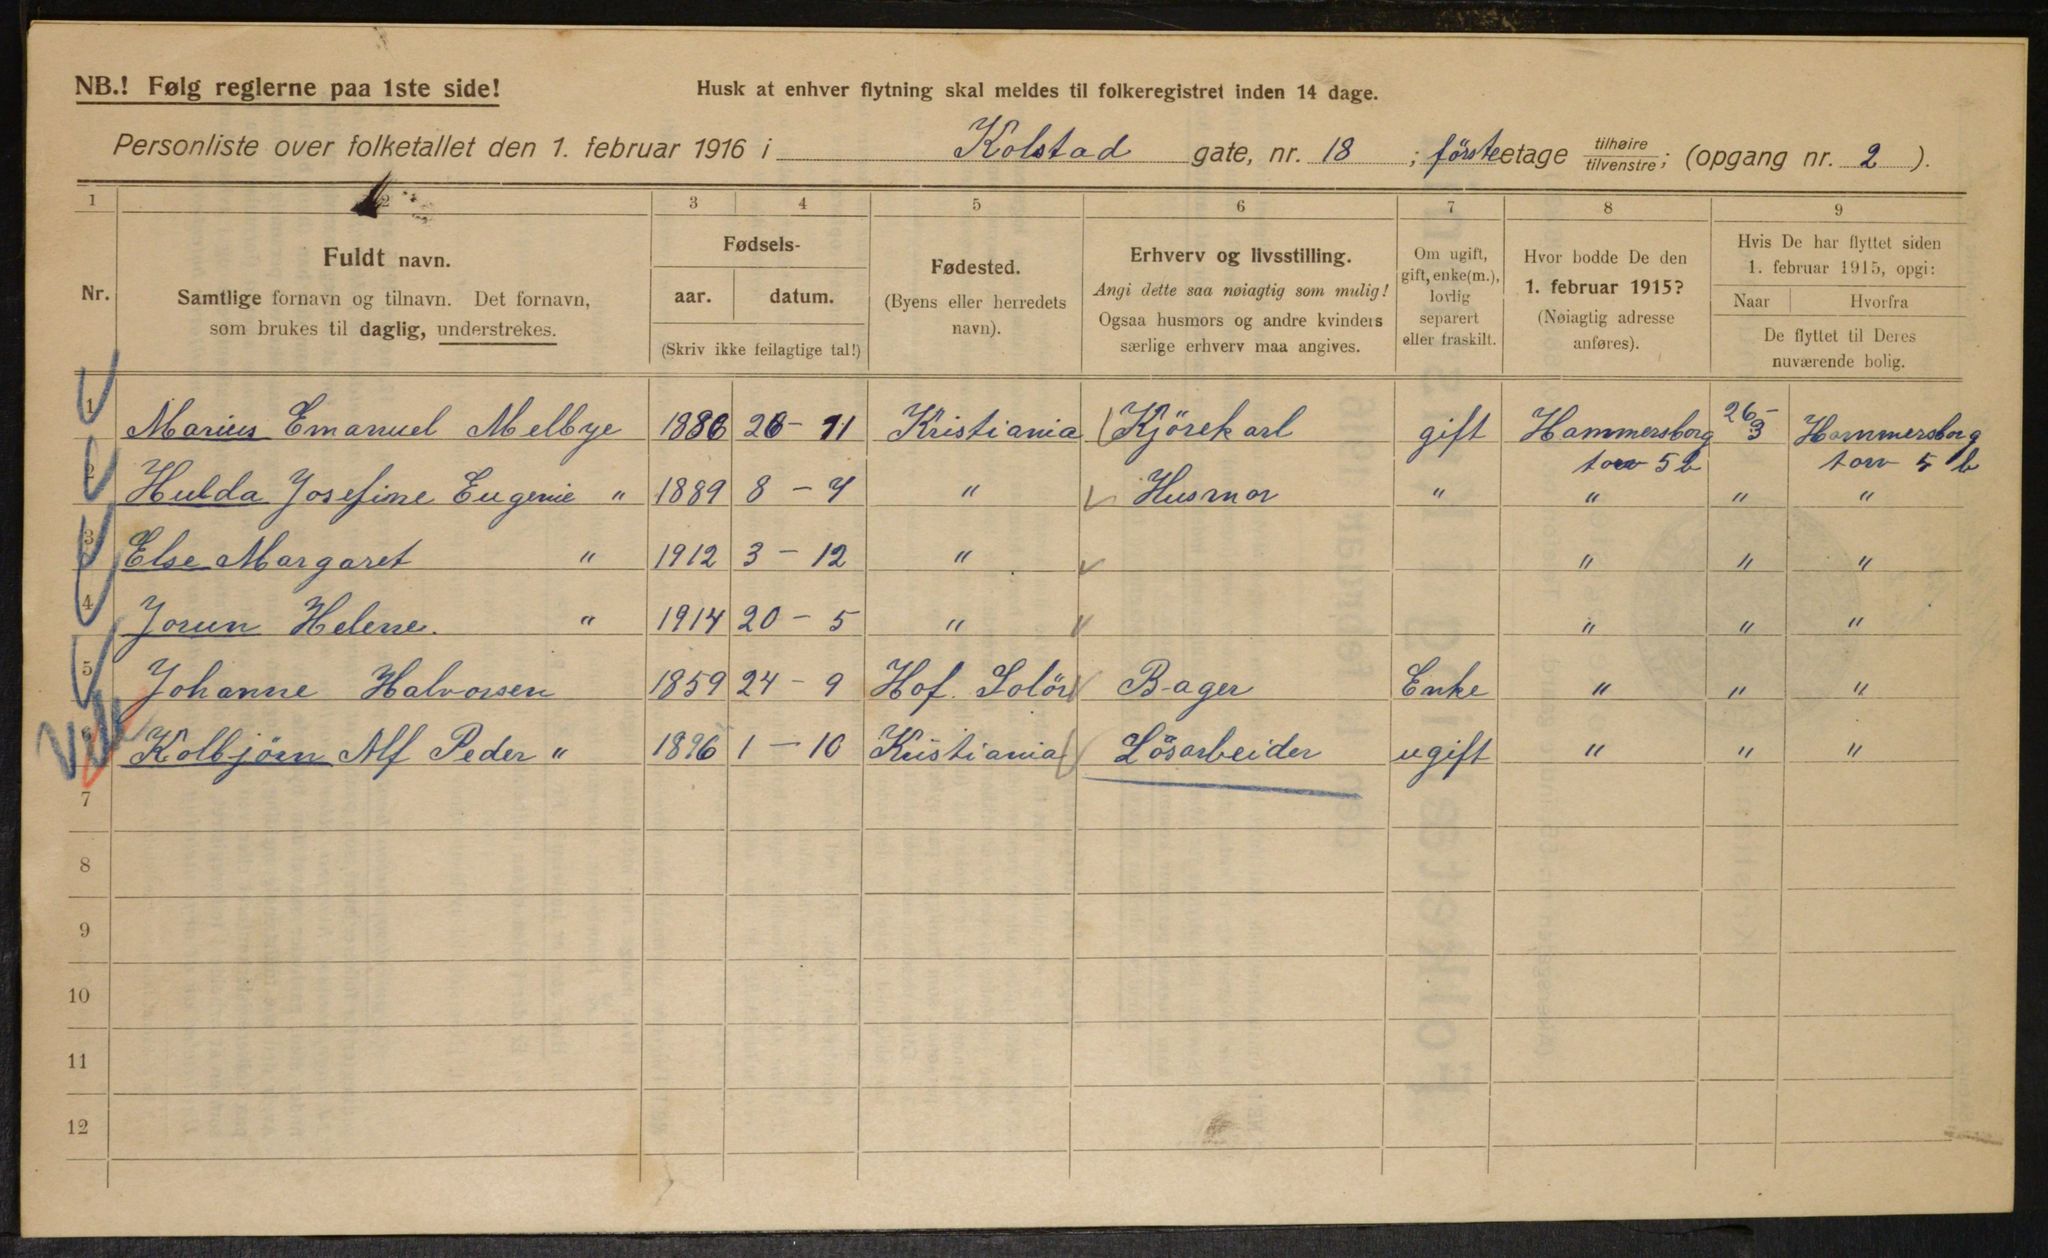 NB.! Følg reglerne paa 1ste side!
Husk at enhver flytning skal meldes til folkeregistret inden 14 dage.
Personliste over folketallet den 1. februar 1916 i Kolstad gate, nr. 18 ; første etage tilhøire/tilvenstre; (opgang nr. 2 ).
1 2 3 4 5 6 7 8 9
Nr.
Fuldt navn.
Samtlige fornavn og tilnavn. Det fornavn,
som brukes til daglig, understrekes.
Fødsels-
aar. datum.
(Skriv ikke feilagtige tal!)
Fødested.
(Byens eller herredets
navn).
Erhverv og livsstilling.
Angi dette saa nøiagtig som mulig!
Ogsaa husmors og andre kvinders
særlige erhverv maa angives.
Om ugift,
gift, enke(m.),
lovlig
separert
eller fraskilt.
Hvor bodde De den
1. februar 1915?
(Nøiagtig adresse
anføres).
Hvis De har flyttet siden
1. februar 1915, opgi:
Naar Hvorfra
De flyttet til Deres
nuværende bolig.
1 Marius Emanuel Melbye 1886 26 - 11 Kristiania Kjörekarl gift Hammersborg torv 5 b 26-3 Hammersborg torv 5 b
2 Hulda Josefine Eugenie " 1889 8 - 4 " Husmor " " " "
3 Else Margaret " 1912 3 - 12 " " " "
4 Jorun Helene. " 1914 20 - 5 " " " "
5 Johanne Halvorsen 1859 24 - 9 Hof. Solör Bager Enke " " "
6 Kolbjörn Alf Peder " 1896 1 - 10 Kristiania Lösarbeider ugift " " "
7
8
9
10
11
12